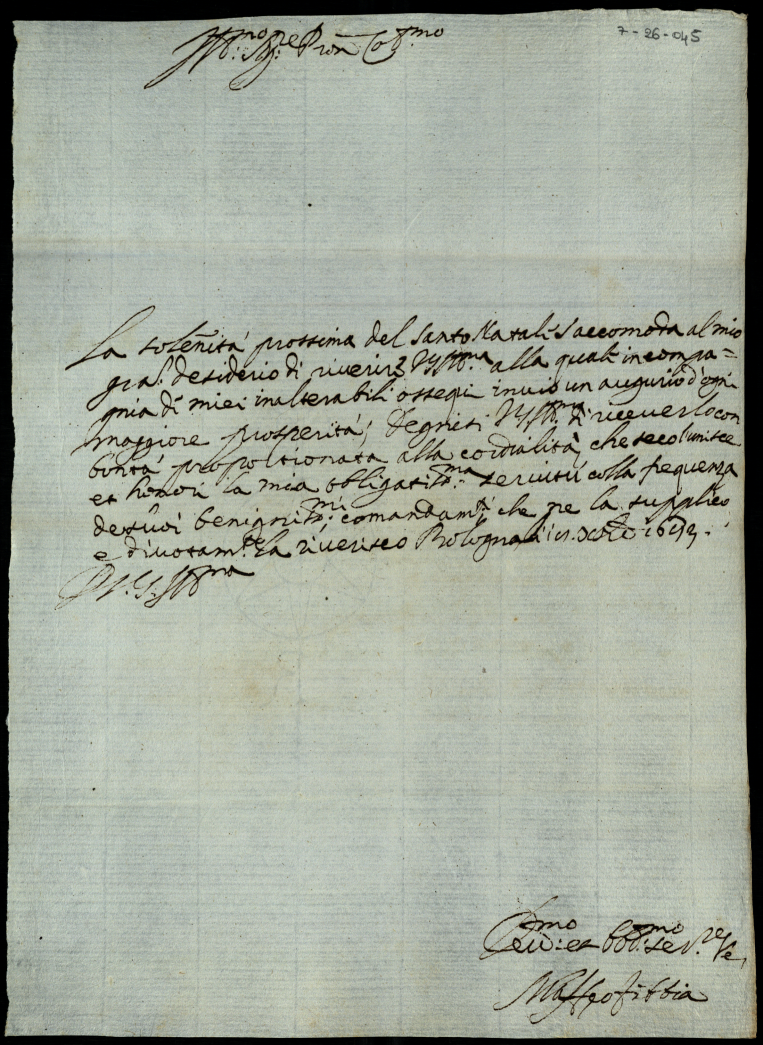 7-26-045
Ill.mo Sig.re P.ron Col.mo
La solen̄ità prossima del Santo Natale s'accomoda al mio
gra.l desiderio di riverire V.S.Ill.ma alla quale in compa=
gnia de miei inalterabili ossequi invio un augurio d'ogni
maggiore prosperità; degnisi V.S.Ill.ma di riceverlo con
bontà proportionata alla cordialità, che seco l'unisce
et honori la mia obligatiss.ma servitù colla frequenza
de suoi benigniss.mi comandam.ti che ne la supplico
e divotam.te la riverisco Bologna li Xbre
D. V. S. Ill.ma
Dev.mo et Obb.mo Ser.re
Maffeo Fibbia